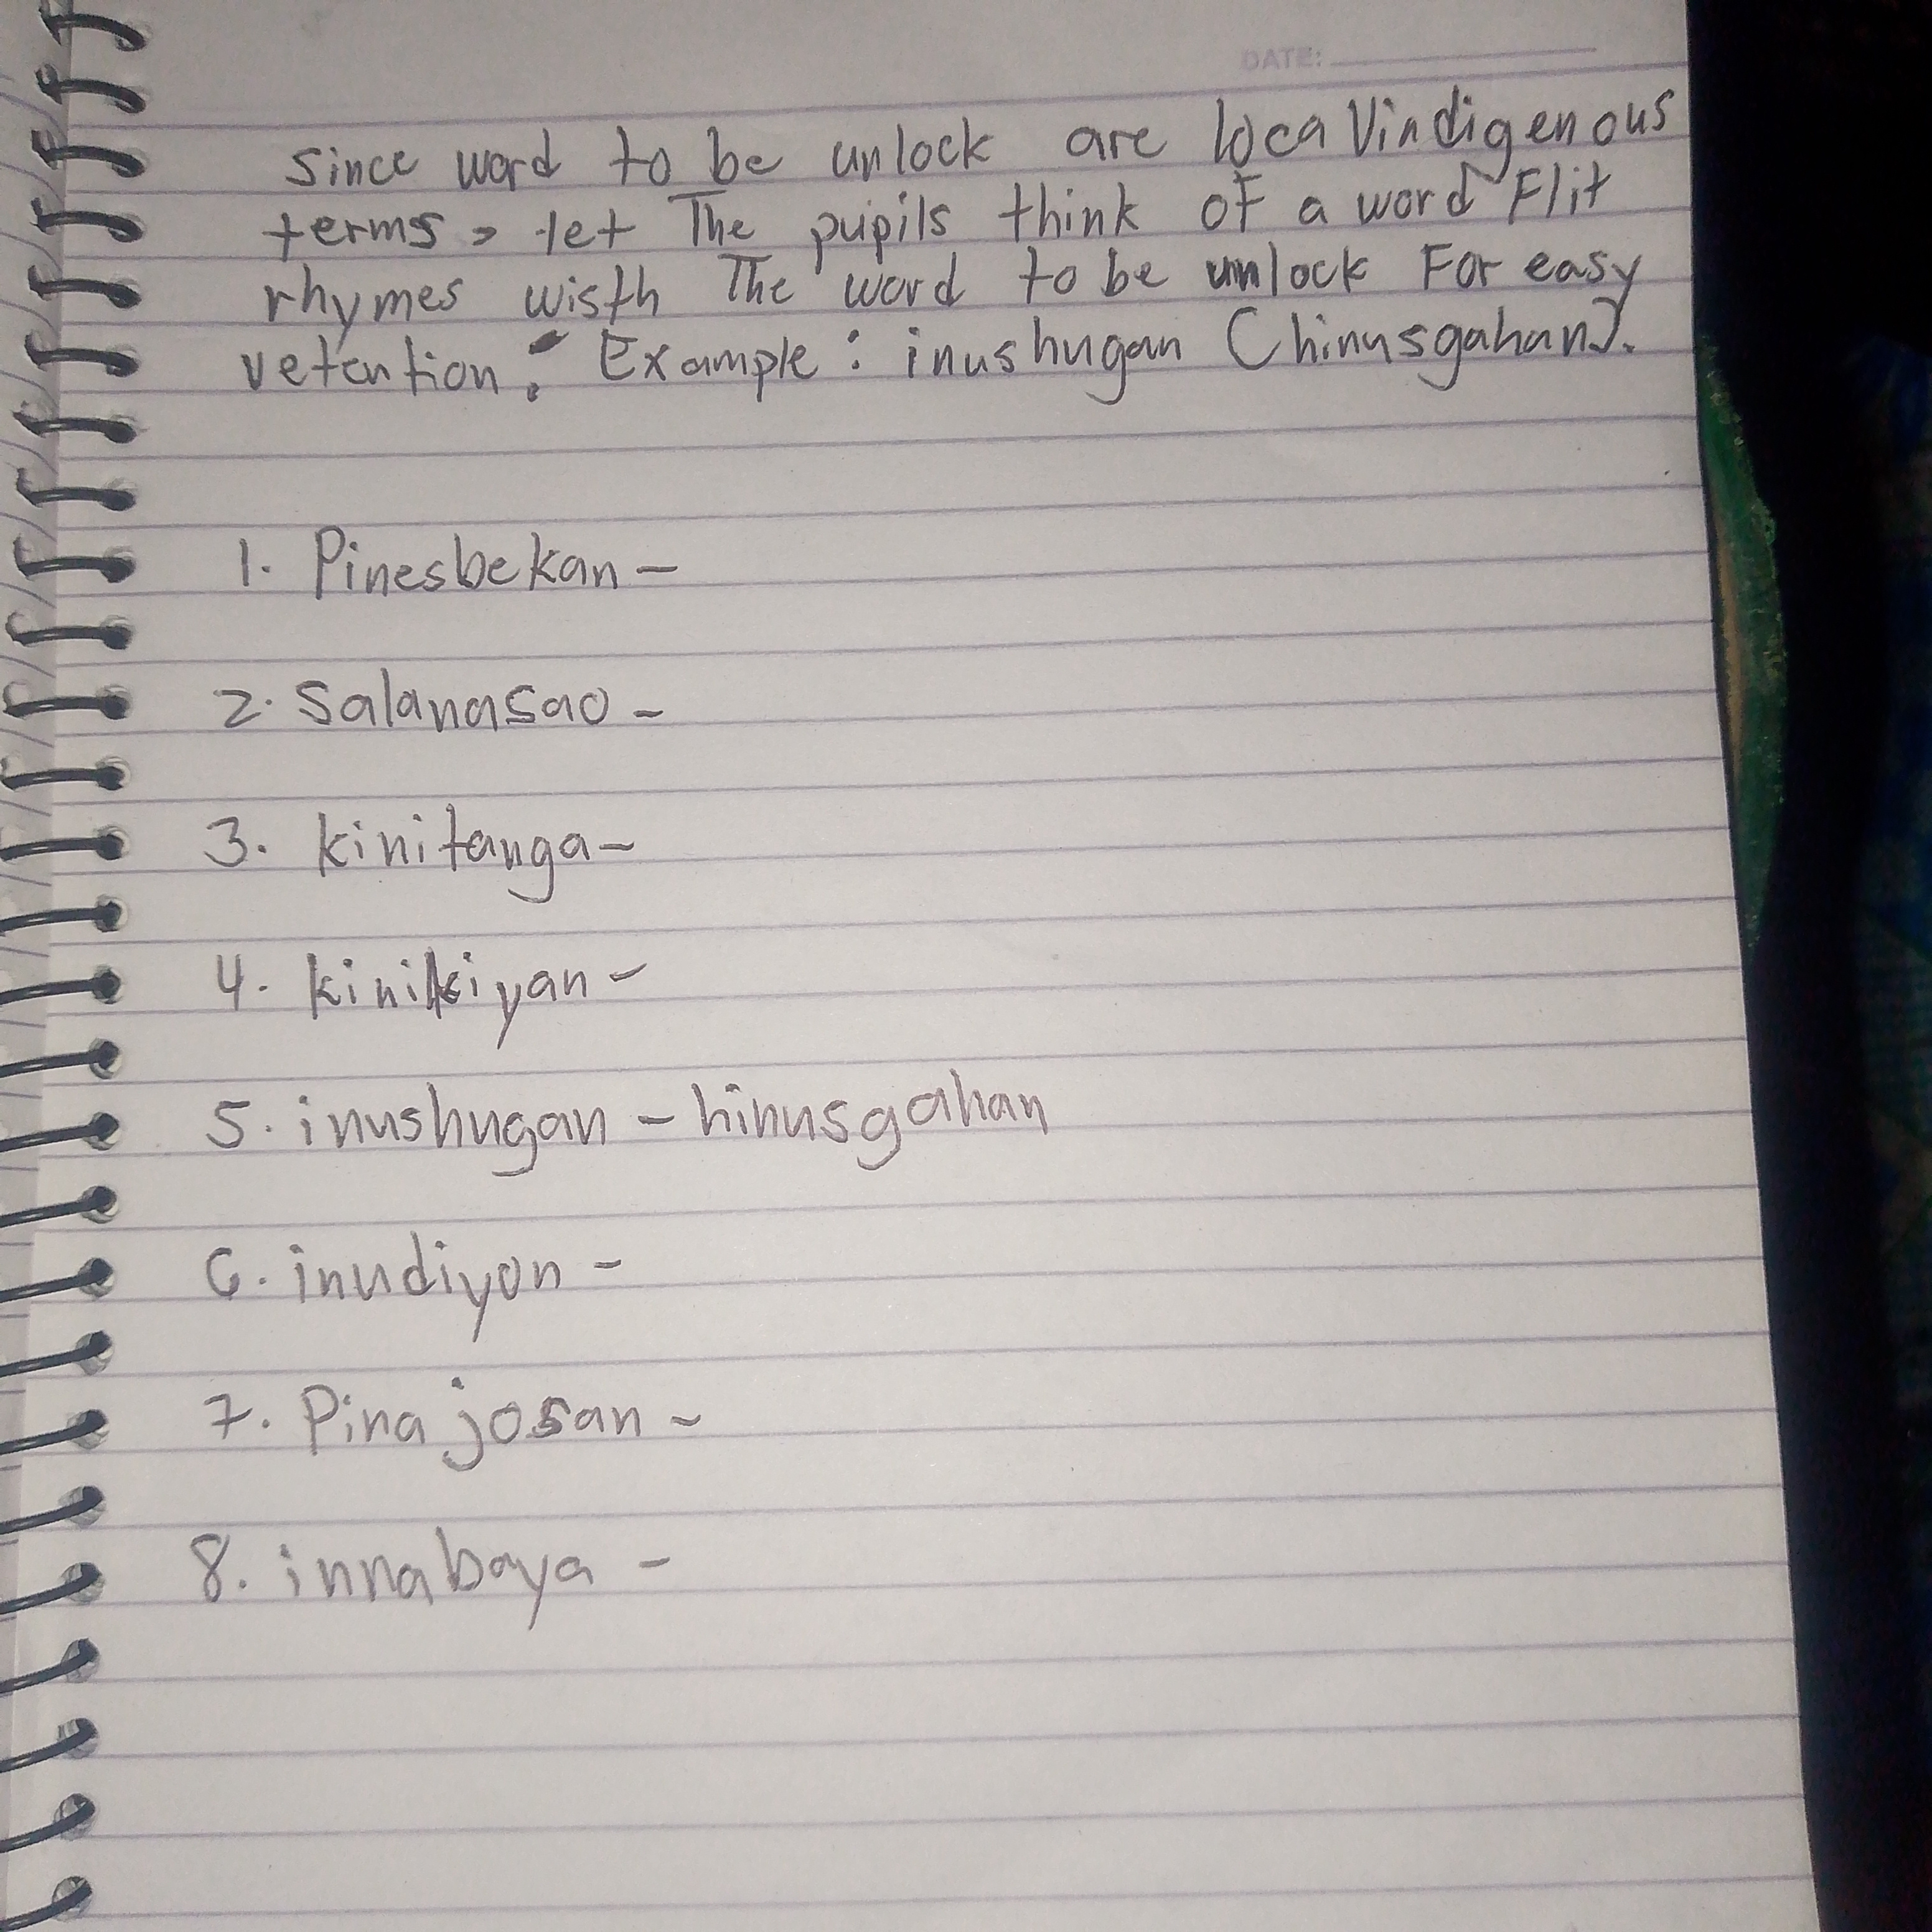 DATE:
Since word to be unlock are local/indigenous
terms, let The pupils think of a word Flit
rhymes wisth The word to be unlock For easy
retention. Example: inushugan (hinusgahan).
1. Pinesbekan -
2. Salanasao -
3. kinitanga -
4. kinikiyan -
5. inushugan - hinusgahan
6. inudiyon -
7. Pinajosan -
8. innabaya -